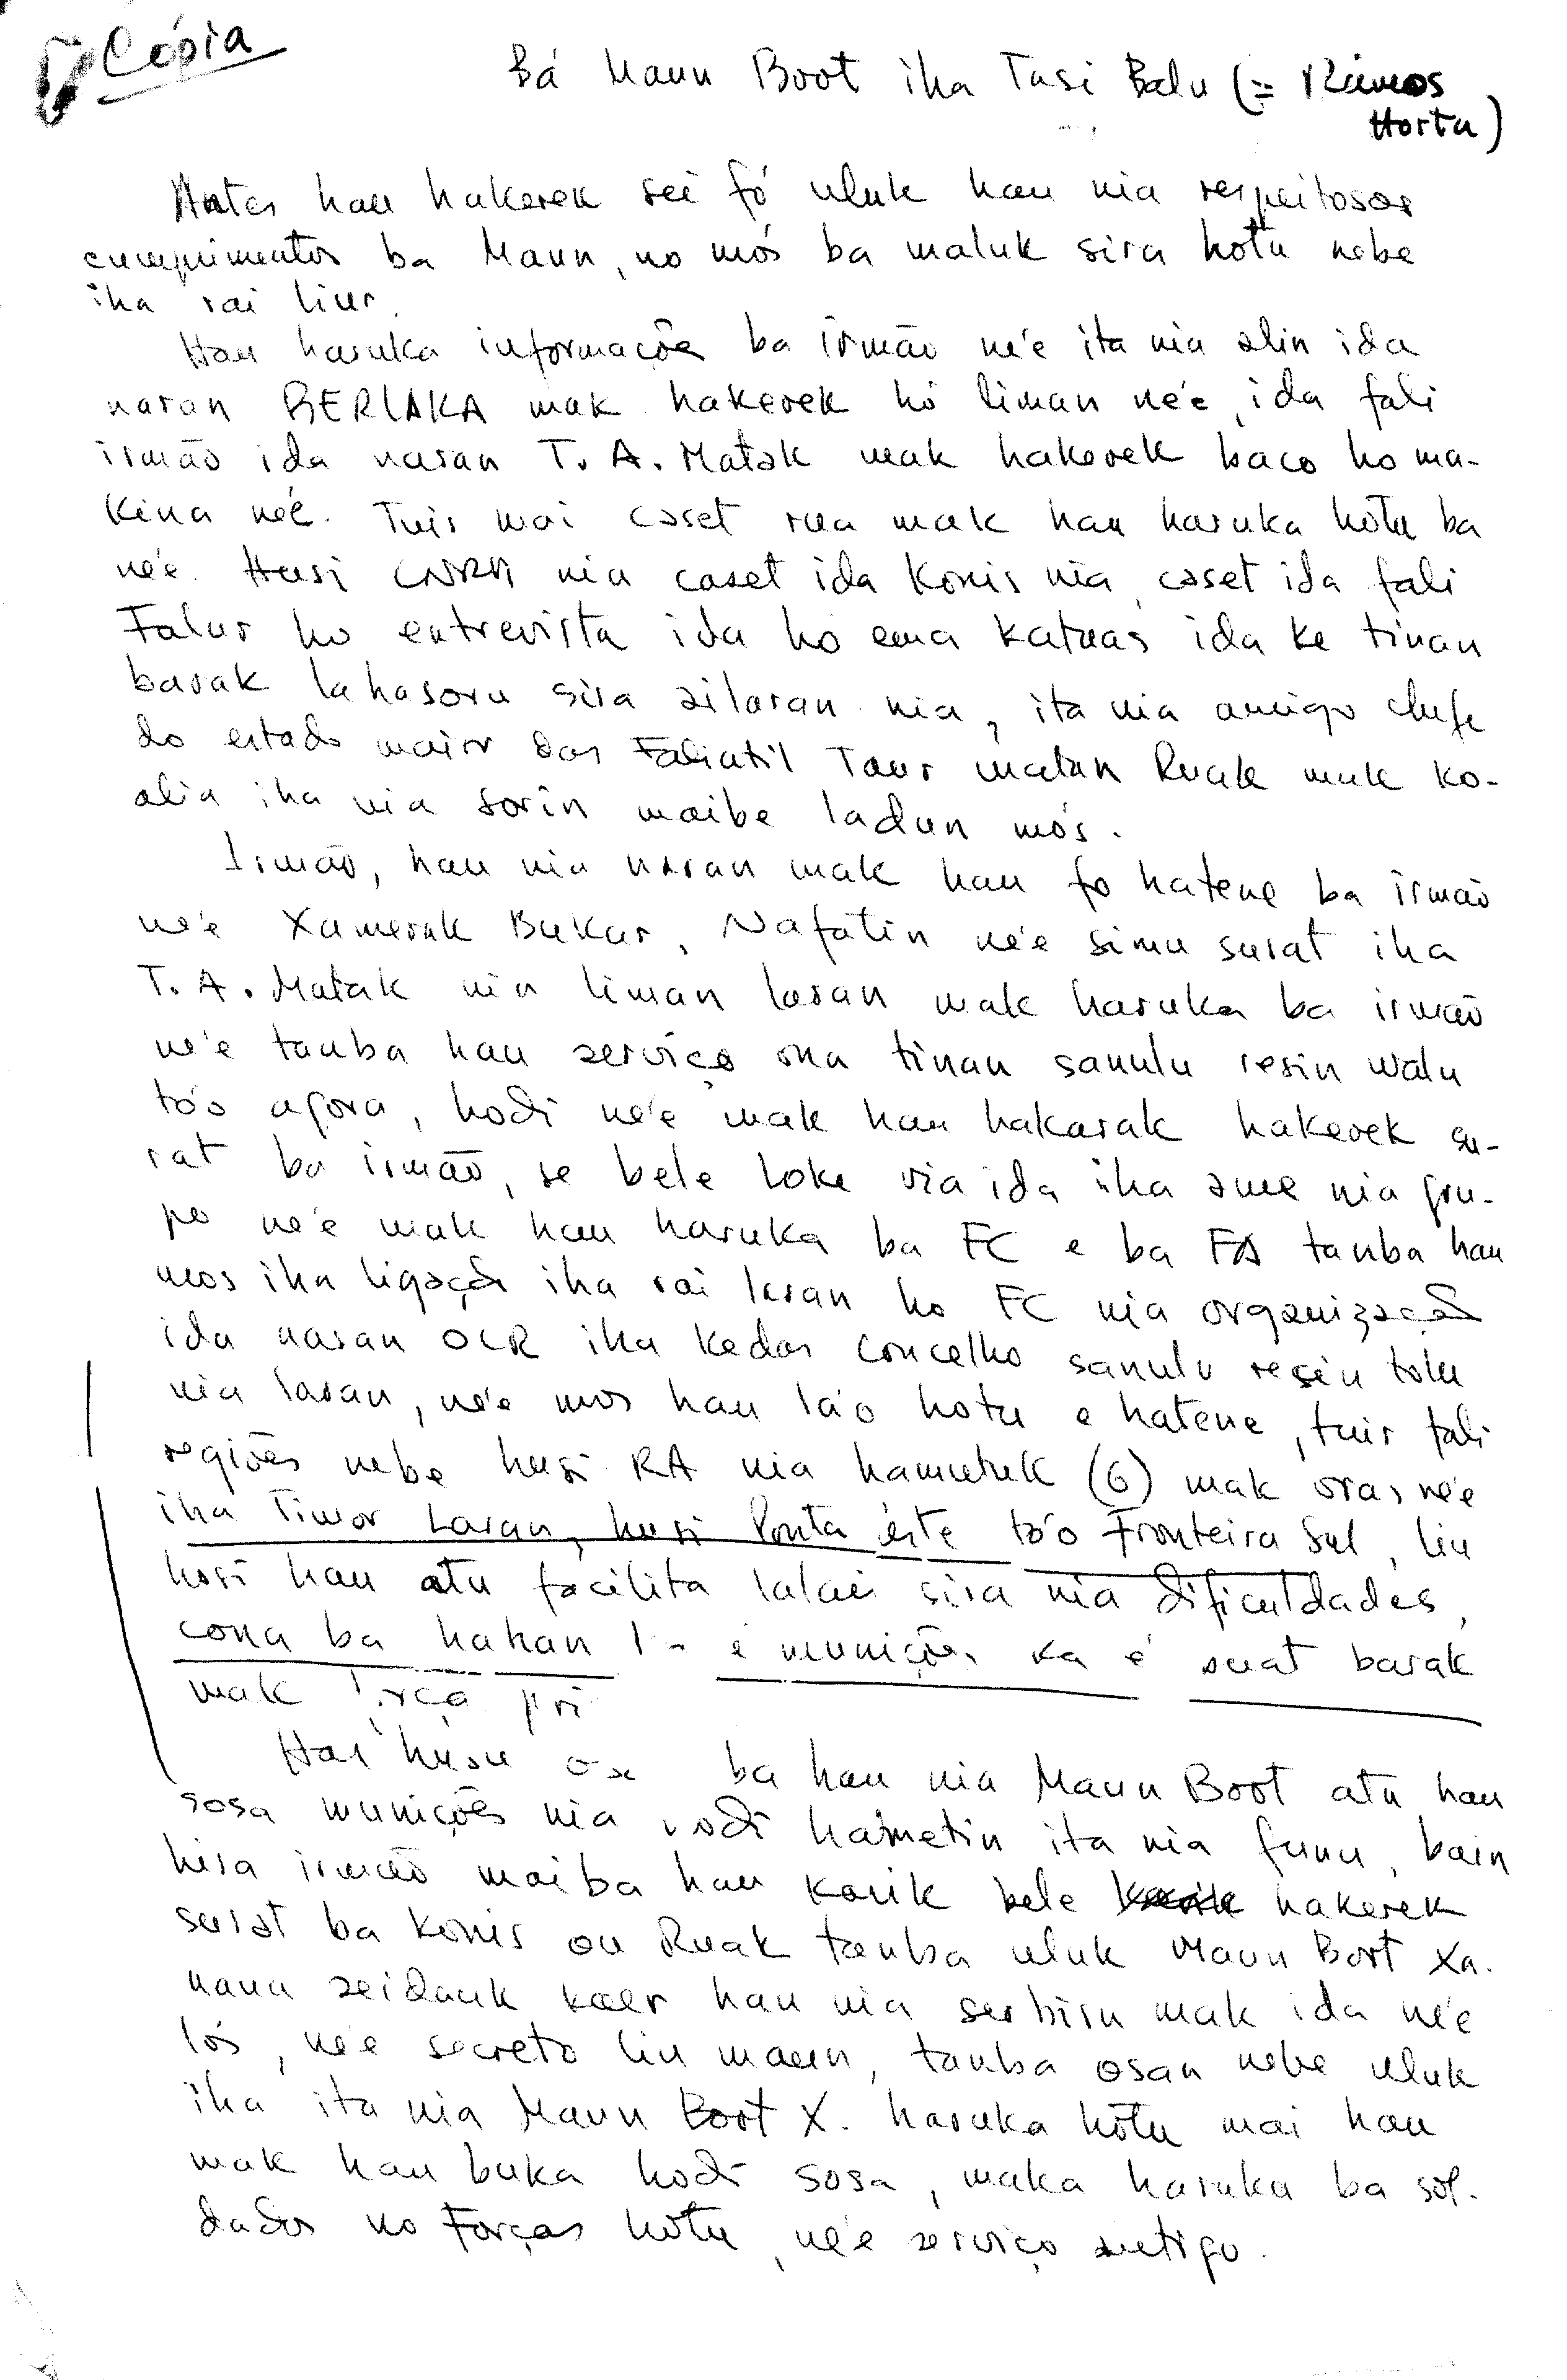 Cópia
Bá Maun Boot iha Tasi Balu (= Ramos
Horta)
Antes hau hakerek sei fó uluk hau nia respeitosos
cumprimentos ba Maun, no mós ba maluk sira hotu nebe
iha rai liur.
Hau haruka informações ba irmão ne'e ita nia alin ida
naran BERLAKA mak hakerek hó liman ne'e, ida fali
irmão ida naran T. A. Matak mak hakerek baco ho ma-
kina né'e. Tuir mai caset rua mak hau haruka hotu ba
ne'e. Husi CNRM nia caset ida Konis nia, caset ida fali
Falur ho entrevista ida ho ema katuas ida ke tinan
barak lahasoru sira ailaran nia, ita nia amigo chefe
do estado maior das Falintil Taur matan Ruak mak ko-
alia iha nia sorin maibe ladun mós.
Irmão, hau nia naran mak hau fo hatene ba irmão
ne'e Xamerak Bukar, Nafatin ne'e simu surat iha
T. A. Matak nia liman laran mak haruka ba irmão
ne'e tanba hau serviço ona tinan sanulu resin walu
tó'o agora, hodi ne'e mak hau hakarak hakerek su-
rat ba irmão, se bele loke via ida iha ame nia gru-
po ne'e mak hau haruka ba FC e ba FA tanba hau
mos iha ligação iha rai laran ho FC nia organização
ida naran OCR iha kedas concelho sanulu resin tolu
nia laran, ne'e mos hau la'o hotu e hatene, tuir fali
regiões nebe husi RA nia hamutuk (6) mak oras ne'e
iha Timor Laran, husi Ponta éste tó'o Fronteira Sul, liu
hosi hau atu facilita lalais sira nia dificuldades,
cona ba hahan e munições ka é surat barak
mak
Hau husu ba hau nia Maun Boot atu hau
sosa munições nia hodi haimetin ita nia funu, bain
hira irmão maiba hau karik bele hakerek
surat ba Konis ou Ruak tanba uluk Maun Boot Xa-
nana seidauk kaer hau nia serbisu mak ida ne'e
lós, ne'e secreto liu maun, tanba osan nebe uluk
iha ita nia Maun Boot X. haruka hotu mai hau
mak hau buka hodi sosa, maka haruka ba sol-
dados no Forças hotu, ne'e serviço antigo.